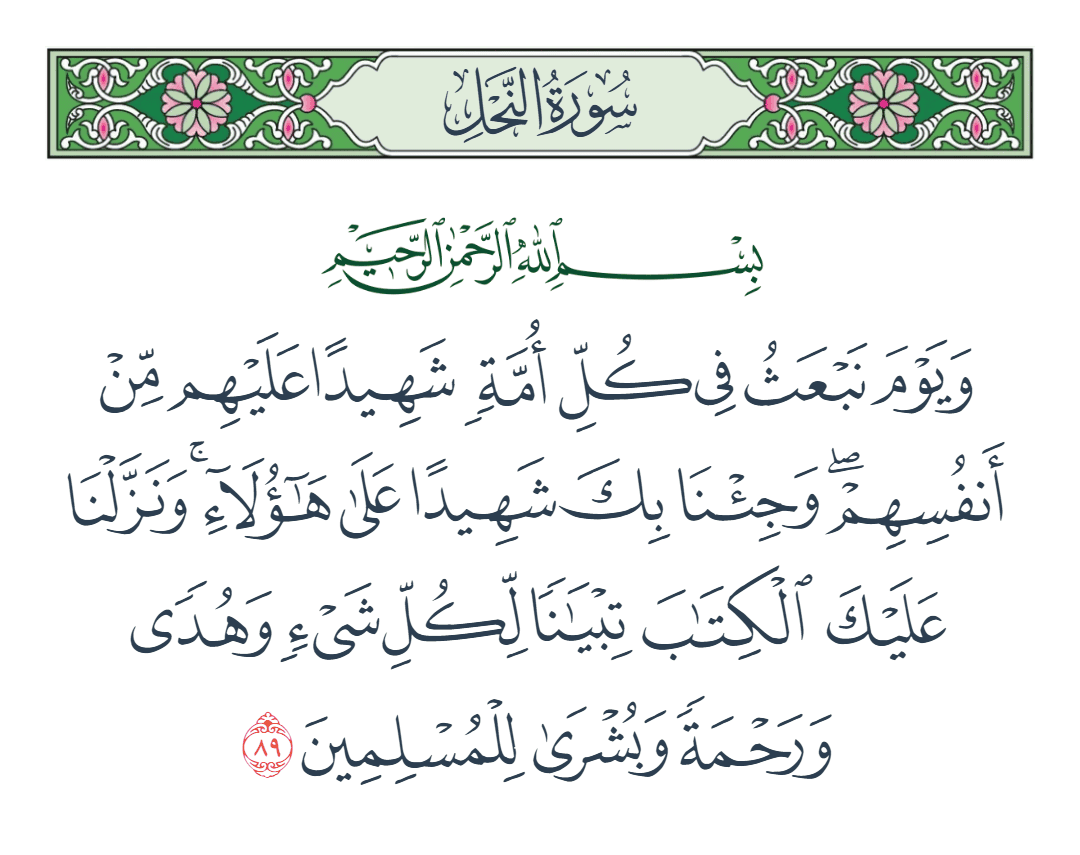 سُورَةُ النَّحْلِ
بِسْمِ ٱللَّهِ ٱلرَّحْمَٰنِ ٱلرَّحِيمِ
وَيَوْمَ نَبْعَثُ فِى كُلِّ أُمَّةٍ شَهِيدًا عَلَيْهِم مِّنْ
أَنفُسِهِمْ ۖ وَجِئْنَا بِكَ شَهِيدًا عَلَىٰ هَٰٓؤُلَآءِ ۚ وَنَزَّلْنَا
عَلَيْكَ ٱلْكِتَٰبَ تِبْيَٰنًا لِّكُلِّ شَىْءٍ وَهُدًى
وَرَحْمَةً وَبُشْرَىٰ لِلْمُسْلِمِينَ ٨٩